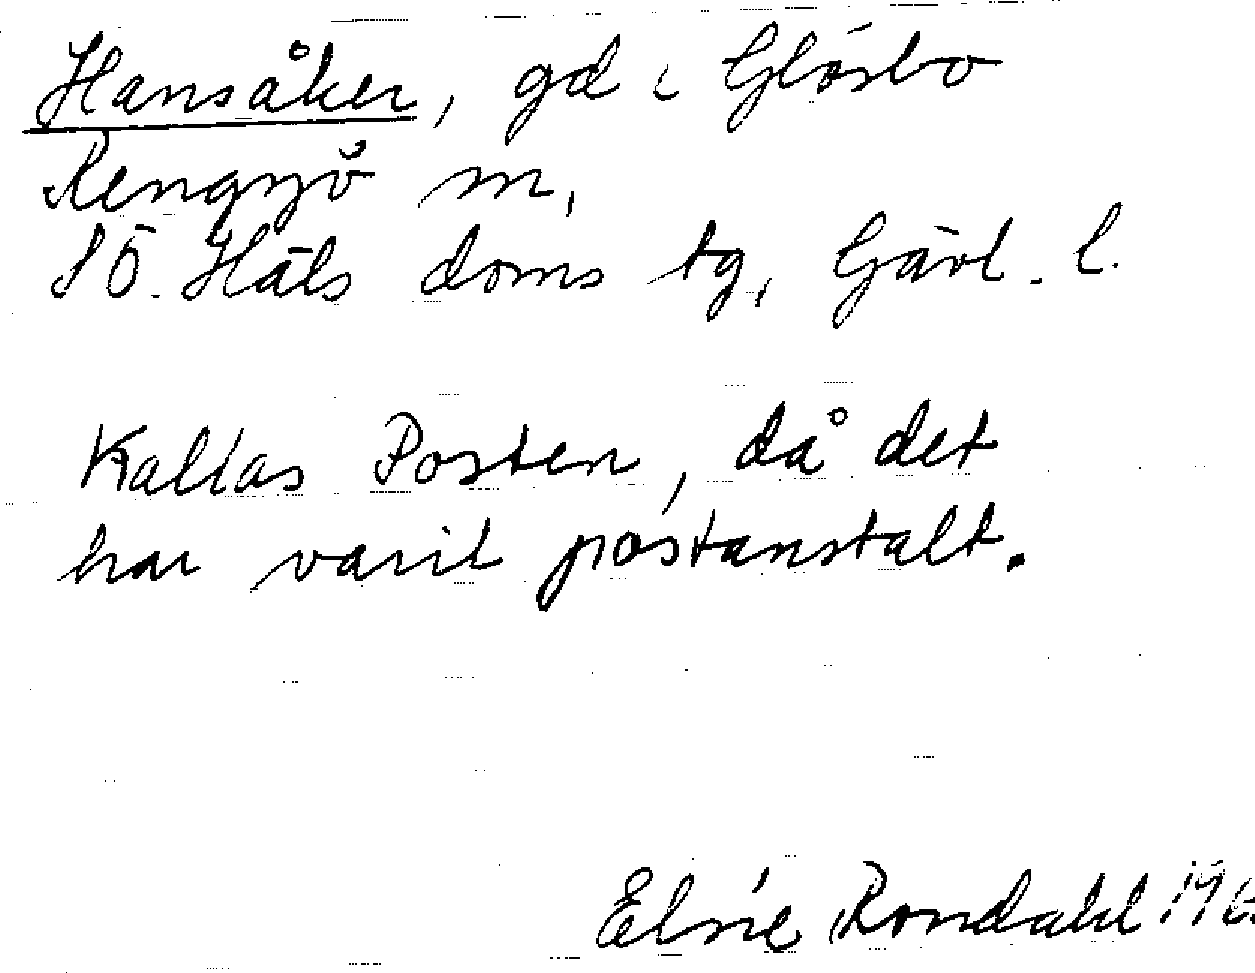 Hansåker, gd i Glösbo
Rengsjö sn,
SÖ. Häls doms tg, Gävl. l.
Kallas Posten, då det
har varit postanstalt.
Elsie Rondahl 196